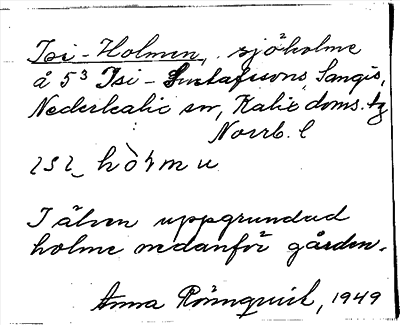 Isi-Holmen, sjöholme
å 5³ Isi-Gustafssons, Sangis,
Nederkalix sn, Kalix doms. tg
Norrb. l
ɩsɩ hòɬmu
I älven uppgrundad
holme nedanför gården.
Anna Rönnquist, 1949